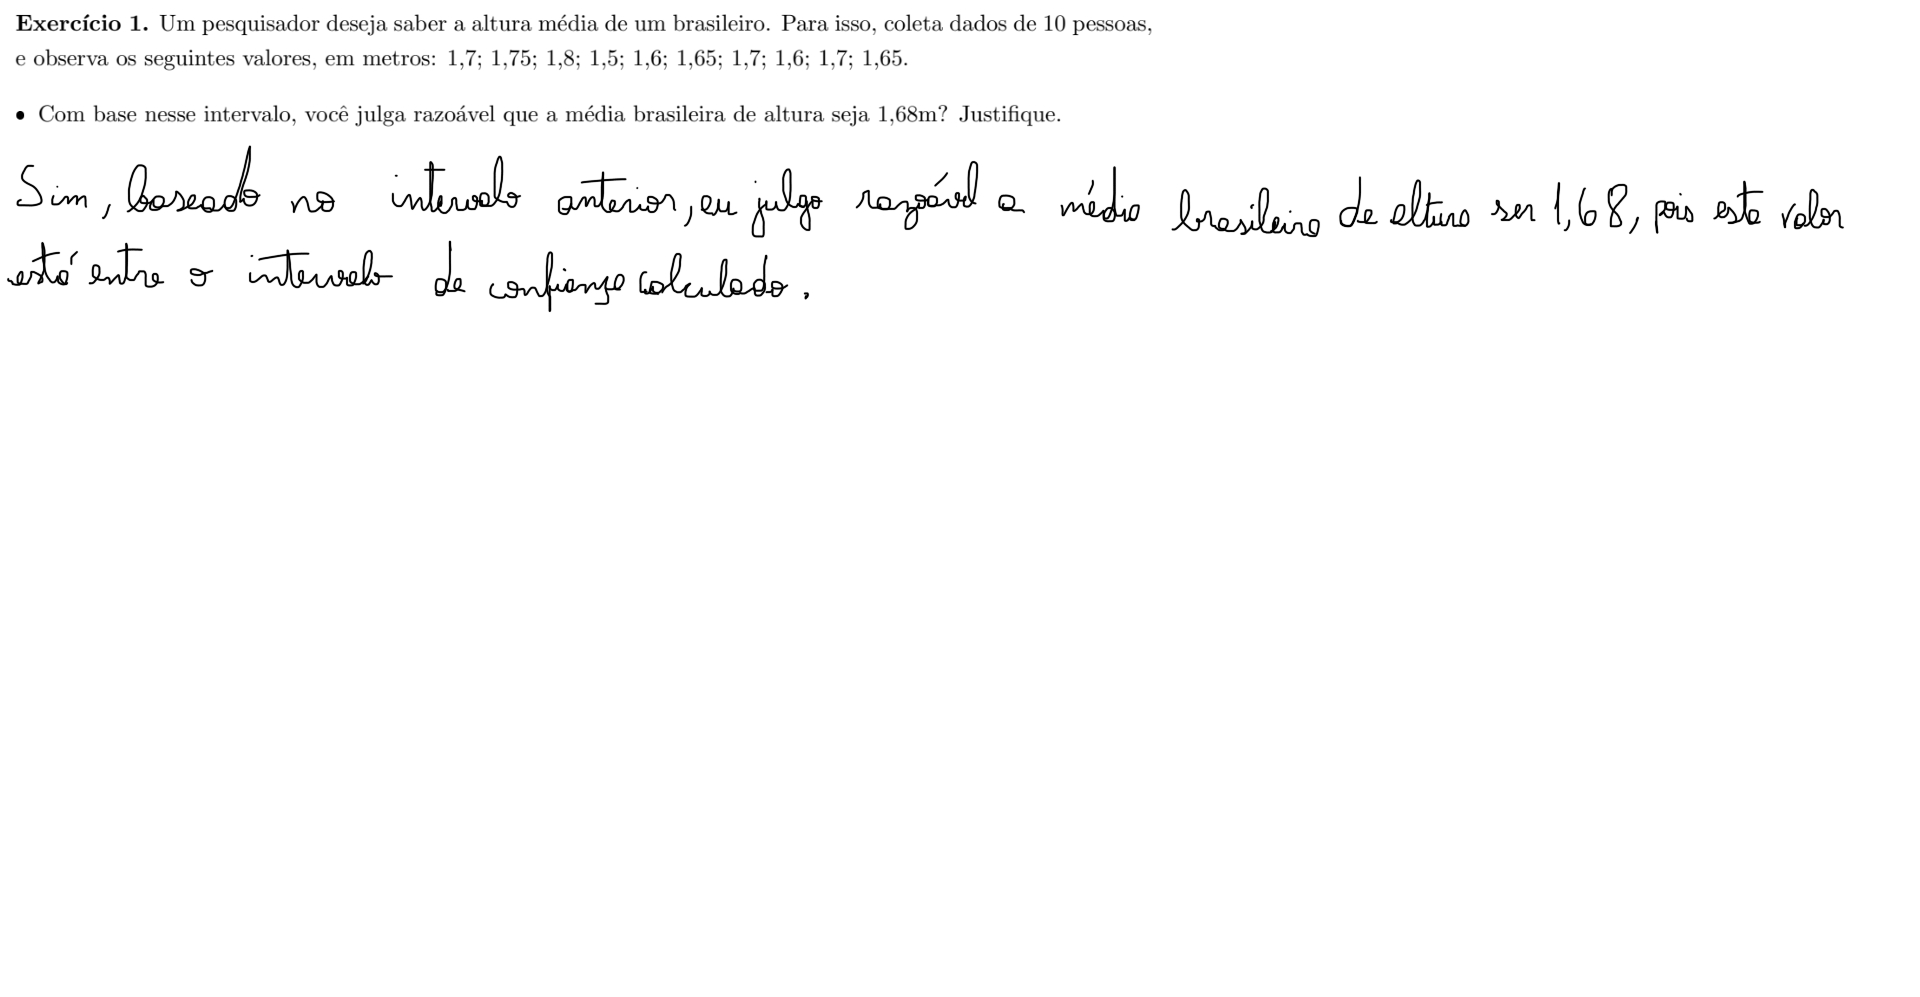 Exercício 1. Um pesquisador deseja saber a altura média de um brasileiro. Para isso, coleta dados de 10 pessoas,
e observa os seguintes valores, em metros: 1,7; 1,75; 1,8; 1,5; 1,6; 1,65; 1,7; 1,6; 1,7; 1,65.
• Com base nesse intervalo, você julga razoável que a média brasileira de altura seja 1,68m? Justifique.
Sim, baseado no intervalo anterior, eu julgo razoável a média brasileira de altura ser 1,68, pois este valor
está entre o intervalo de confiança calculado.